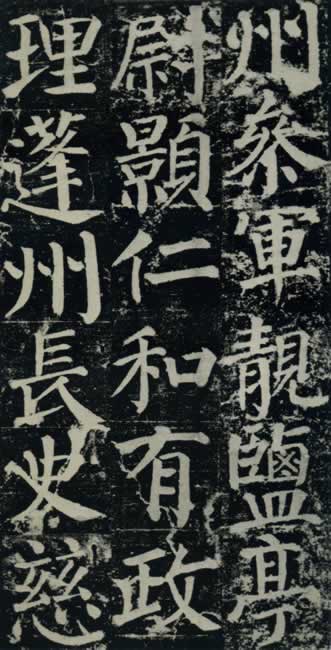 州叅軍靚鹽亭
尉顥仁和有政
理蓬州長史慈